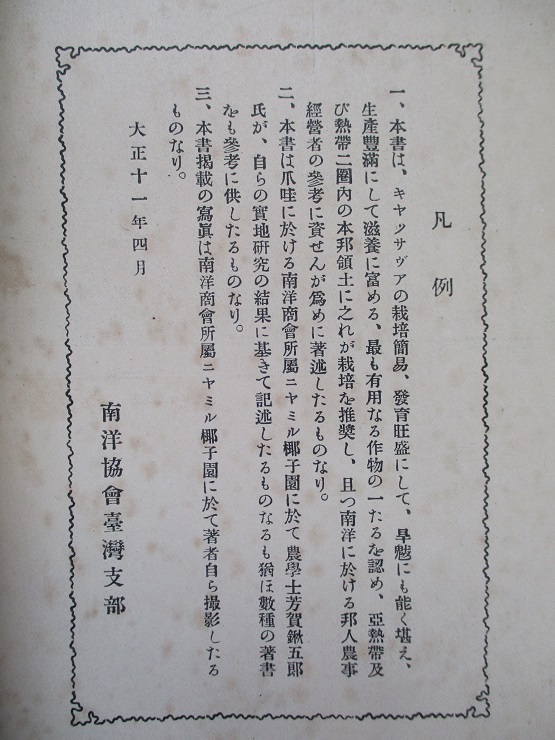 凡例
一、本書は、キヤッサヴアの栽培簡易、發育旺盛にして、旱魃にも能く堪え、
生產豐滿にして滋養に富める、最も有用なる作物の一たるを認め、亞熱帶及
び熱帶二圈內の本邦領土に之れが栽培を推奬し、且つ南洋に於ける邦人農事
經營者の參考に資せんが爲めに著述したるものなり。
二、本書は爪哇に於ける南洋商會所屬ニヤミル椰子園に於て農學士芳賀鍬五郎
氏が、自らの實地硏究の結果に基きて記述したるものなるも猶ほ數種の著書
をも參考に供したるものなり。
三、本書揭載の寫眞は南洋商會所屬ニヤミル椰子園に於て著者自ら撮影したる
ものなり。
大正十一年四月
南洋協會臺灣支部